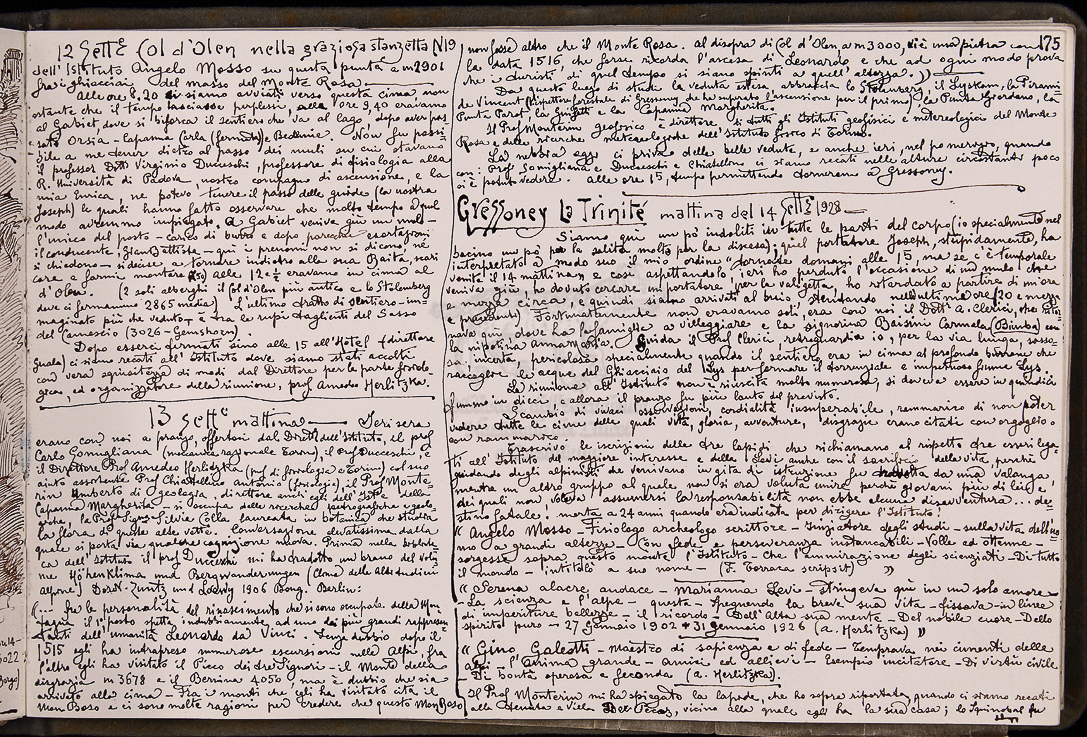 12 Sett.e Col d'Olen nella graziosa stanzetta N19
dell'Istituto Angelo Mosso su questa punta a m 2901
fra i ghiacciai del masso del Monte Rosa.
Alle ore 8,20 ci siamo avviati verso questa cima non
ostante che il tempo lasciasse perplessi, alle ore 9,40 eravamo
al Gabiet, dove si biforca il sentiero che va al lago, dopo aver pas
sato Orsia - Capanna Carla (fermata) e Bedemie. Non fu possi
bile a me tener dietro al passo dei muli su cui stavano
il professor Dott Virginio Ducceschi, professore di fisiologia alla
R. Università di Padova, nostro compagno di ascensione, e la
mia Enrica, ne potevo tenere il passo delle guide (la nostra
Joseph) le quali hanno fatto osservare che molto tempo a quel
modo avremmo impiegato. A Gabiet veniva giù un mulo
l'unico del posto - carico di burro e dopo parecchie esortazioni
il conducente, Gian Battista - qui i prenomi non si dicono né
si chiedono - si decise a tornare indietro alla sua Baita, scari
ca la fonti montare Alle 12 e ½ eravamo in cima al
d'Olen. (2 soli alberghi il Col d'Olen più antico e lo Stolemberg
dove ci fermammo 2865 media) L'ultimo tratto di sentiero - im
maginato più che veduto - è tra le rupi taglienti del Sasso
del Camoscio (3026 - Gemshorn).
Dopo esserci fermati sino alle 15 all'Hotel (direttore
Guala) ci siamo recati all'Istituto dove siamo stati accolti
con vera squisitezza di modi dal Direttore per la parte fisiolo
gica, ed organizzatore della riunione, prof Amedeo Herlitzka.
13 Sett.e mattina — Ieri sera
erano con noi a pranzo, offertoci dal Dirett dell'Istituto, il prof
Carlo Somigliana (meccanica razionale Torino), il Prof Ducceschi, e
il Direttore Prof Amedeo Herlitzka (prof di fisiologia a Torino) col suo
aiuto assistente Prof Chiatellino Antonio (fisiologia), il Prof Monte
rin Umberto di geologia, direttore anche egli dell'Istit della
Capanna Margherita - si occupa delle ricerche petrografiche e geolo
giche, la Prof Sign.a Silvia Colla laureata in botanica che studia
la flora di queste alte vette. Conversazione elevatissima, dalla
quale si porta via qualche cognizione nuova. Prima nella bibliote
ca dell'Istituto il prof Ducceschi mi ha tradotto un brano del volu
me Höhenklima und Bergwanderungen (Clima delle Alte Andicu
altrove) Dordt. Zuntz und Loewy 1906 Bong. Berlin:
"... fra le personalità del rinascimento che si sono occupate della Mon
tagna il 1° posto spetta, indubbiamente, ad uno dei più grandi rappresen
tanti dell'umanità Leonardo da Vinci. Senza dubbio dopo il
1515 egli ha intrapreso numerose escursioni nelle Alpi, fra
l'altro egli ha visitato il Picco dei tre Signori - il Monte della
disgrazia - m 3678 e il Bernina 4050 ma è dubbio che sia
arrivato alla cima - Fra i monti che egli ha visitato cita il
Mon Boso e ci sono molte ragioni per credere che questo Mon Boso
non fosse altro che il Monte Rosa. Al disopra di Col d'Olen, a m 3000, vi è una pietra con 175
la data 1516, che forse ricorda l'ascesa di Leonardo e che ad ogni modo prova
che i turisti di quel tempo si siano spinti a quell'altezza. "
Da questo luogo di studi la veduta estesa abbraccia lo Stolemberg, il Lyskam, la Pirami
de Vincent (Ispettore forestale di Gressoney che ha superato l'ascensione per il primo) la Punta Giordano, la
Punta Parot, la Gnifetti e la Capanna Margherita.
Il Prof Monterin geofisico è direttore di tutti gli Istituti geofisici e metereologici del Monte
Rosa e delle ricerche metereologiche dell'Istituto fisico di Torino.
La nebbia oggi ci priva delle belle vedute, e anche ieri, nel pomeriggio, quando
con i Prof. Somigliana e Ducceschi e Chiatellino ci siamo recati nelle alture circostanti poco
ci è potuto vedere. Alle ore 15, tempo permettendo torneremo a Gressoney.
Gressoney La Trinité mattina del 14 Sett.e 1928 —
Siamo giù un po' indoliti in tutte le parti del corpo (io specialmente nel
bacino un po' per la salita molto per la discesa): quel portatore Joseph, stupidamente, ha
interpretato a modo suo il mio ordine "tornasse domani alle 15, ma se c'è temporale
venite il 14 mattina" e così aspettandolo, ieri ho perduto l'occasione di un mulo che
veniva giù, ho dovuto cercare un portatore per la valigetta, ho ritardato a partire di un'ora
e mezza circa, e quindi siamo arrivati al buio, stentando nell'ultime ore (20 e mezzo
e precedente) Fortunatamente non eravamo soli, era con noi il Dott A. Clerici, che ritor
nava qui dove ha la famiglia a villeggiare e la signorina Baisini Carmela (Bimba) con
la nipotina annamaria. Guida il Prof Clerici, retroguardia io, per la via lunga, sasso
sa, incerta, pericolosa specialmente quando il sentiero era in cima al profondo burrone che
raccoglie le acque del Ghiacciaio del Lys per formare il torrenziale e impetuoso fiume Lys.
La riunione all'Istituto non è riuscita molto numerosa, si doveva essere in quindici
fummo in dieci, e allora il pranzo fu più lauto del previsto.
Scambio di vivaci osservazioni, cordialità insuperabile, rammarico di non poter
vedere tutte le cime delle quali vita, gloria, avventure, disgrazie erano citati con orgoglio o
con rammarico.
Trascrivo le iscrizioni delle tre lapidi che richiamano al rispetto tre esseri lega
ti all'Istituto del maggiore interesse e della Levi anche col sacrificio della vita, perché
guidando degli alpinisti che venivano in gita di istruzione fu da una valanga,
mentre un altro gruppo al quale non si era voluta unire perché giovani più di lei, e
dei quali non voleva assumersi la responsabilità non ebbe alcuna disavventura... de
stino fatale! morta a 24 anni quando era indicata per dirigere l'Istituto!
"Angelo Mosso Fisiologo archeologo scrittore - Iniziatore degli studi - sulla vita dell'uo
mo a grandi altezze - Con fede e perseveranza instancabili - Volle ed ottenne -
sorgesse sopra questo monte l'Istituto - Che l'ammirazione degli scienziati - Di tutto
il mondo - intitolò a suo nome - (F. Torraca scripsit) "
"Serena alacre audace - Marianna Levi - stringeva qui in un solo amore -
La scienza e l'alpe - questa - spegnendo la breve sua vita - fissava in linee
di imperiture bellezze - il ricordo - Dell'alta sua mente - Del nobile cuore - Dello
spirito puro - 27 Gennaio 1902 + 31 gennaio 1926 (a. Herlitzka) "
"Gino Galeotti - maestro di sapienza e di fede - Temprava nei cimenti delle
alpi - l'anima grande - Amici ed allievi - Esempio incitatore - Di virtù civile
Di bontà operosa e feconda (a. Herlitzka).
Il Prof Monterin mi ha spiegato la lapide, che ho sopra riportata, quando ci siamo recati
alla tenuta e Villa Der Pecoz, vicino alla quale egli ha la sua casa; lo fu